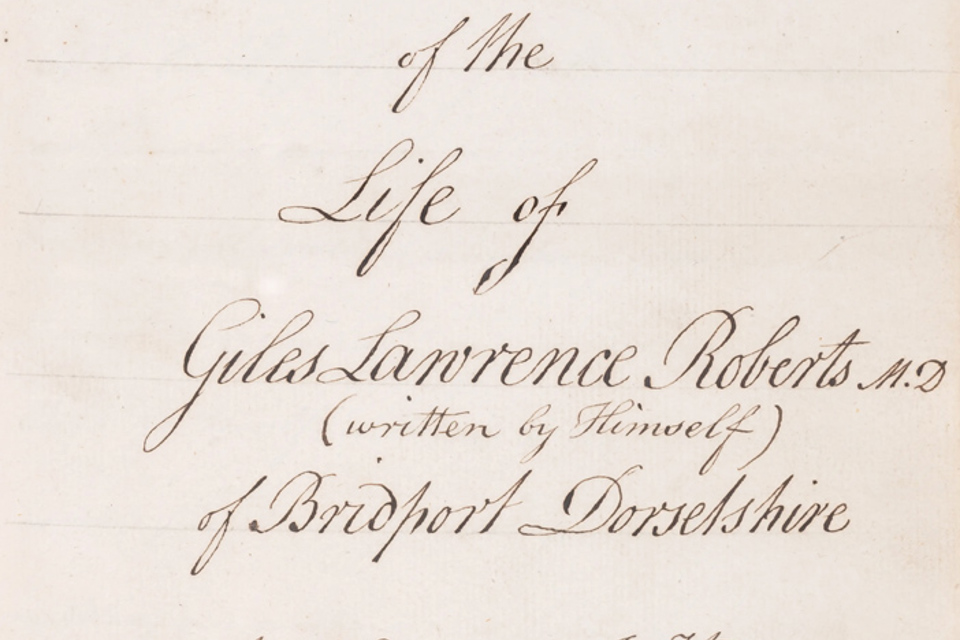 of the
Life of
Giles Lawrence Roberts M.D
(written by Himself)
of Bridport Dorsetshire